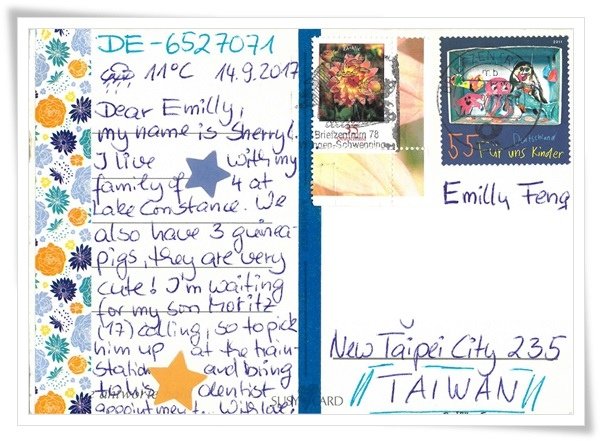 DE-6527071
11°C 14.9.2017
Dear Emilly,
my name is Sherryl.
I live with my
family of 4 at
Lake Constance. We
also have 3 guinea-
pigs, they are very
cute! I'm waiting
for my son Moritz
(17) calling, so to pick
him up at the train-
station and bring
to his dentist
appointment. With love!
Briefzentrum 78
2011
55 Deutschland
Für uns Kinder
Emilly Feng
New Taipei City 235
TAIWAN